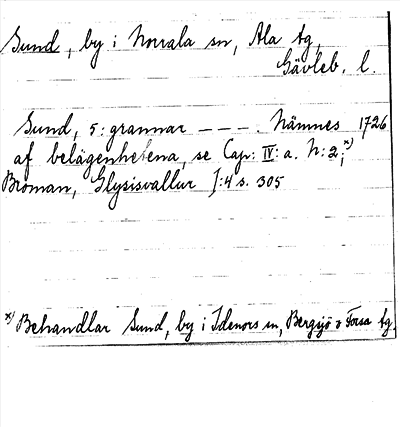 Sund, by i Norrala sn, Ala tg,
Gävleb. l.
Sund, 5: grannar - - - . Nämnes 1726
af belägenhetena, se Cap: IV: a. N: 2; x)
Broman, Glysisvallur I:4 s. 305
x) Behandlar Sund, by i Idenors sn, Bergsjö o Forsa tg.